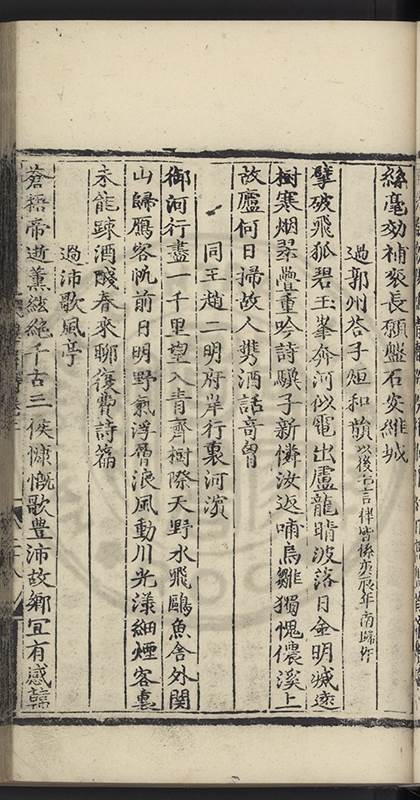 絲毫効補衮長願盤石奕維城
過郭州荅子烜和韻以後七言律皆係庚辰年南歸作
擘破飛狐碧玉峯奔河似電出盧龍晴波落日金明滅遠
樹寒烟翠疊重吟詩驥子新憐汝返哺烏雛獨愧儂溪上
故廬何日掃故人携酒話奇胷
同王趙二明府岸行裏河濱
御河行盡一千里望入青齊樹際天野水飛鷗魚舍外關
山歸鴈客忱前日明野氣浮層浪風動川光漾細煙客裏
未能疎酒醆春來聊復費詩篇
過沛歌風亭
蒼梧帝逝薫絃絶千古三侯慷慨歌豊沛故鄉宜有感